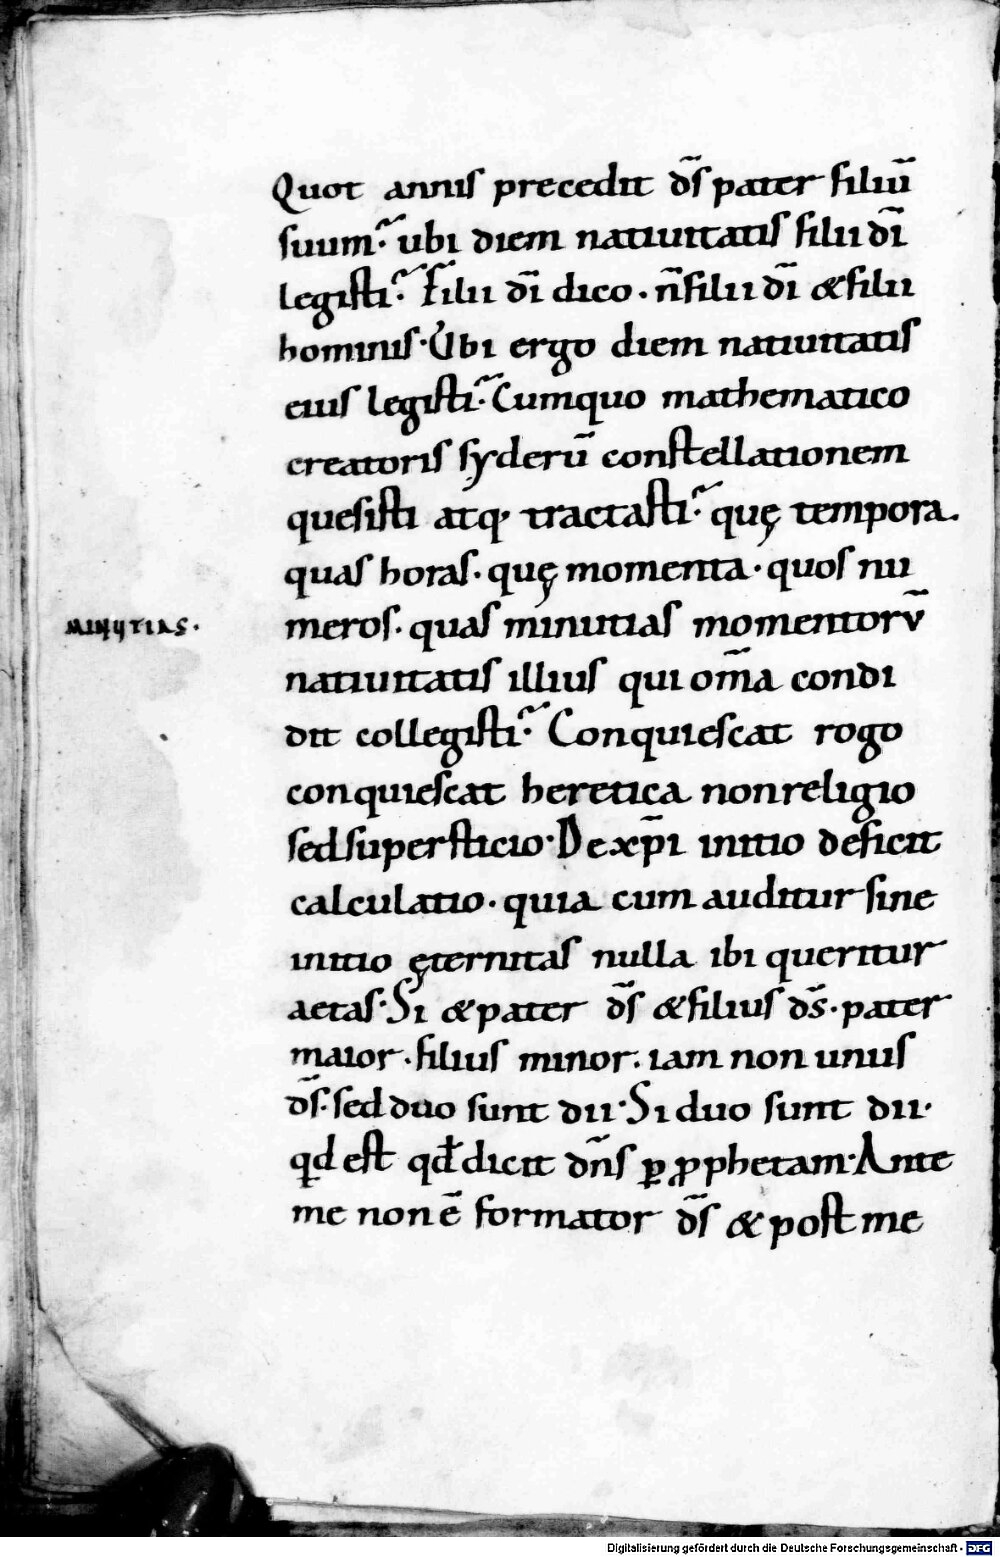 Quot annis precedit d̅s pater filiu̅
suum? ubi diem natiuitatis filii di̅
legisti? Filii di̅ dico · n̅ filii di̅ & filii
hominis · Ubi ergo diem natiuitatis
eius legisti? Cumquo mathematico
creatoris syderu̅ constellationem
quesisti atq· tractasti? quę tempora.
quas horas · quę momenta · quos nu
MINUTIAS.
meros · quas minutias momentoru̅
natiuitatis illius qui om̅a condi
dit collegisti? Conquiescat rogo
conquiescat heretica non religio
sed supersticio · De xp̅i initio deficit
calculatio · quia cum auditur sine
initio ęternitas nulla ibi queritur
aetas · Si & pater d̅s & filius d̅s · pater
maior · filius minor · iam non unus
d̅s · sed duo sunt dii · Si duo sunt dii ·
qd est qđ dicit dn̅s ꝑ ꝓphetam · Ante
me non e̅ formator d̅s & post me
Digitalisierung gefördert durch die Deutsche Forschungsgemeinschaft - DFG